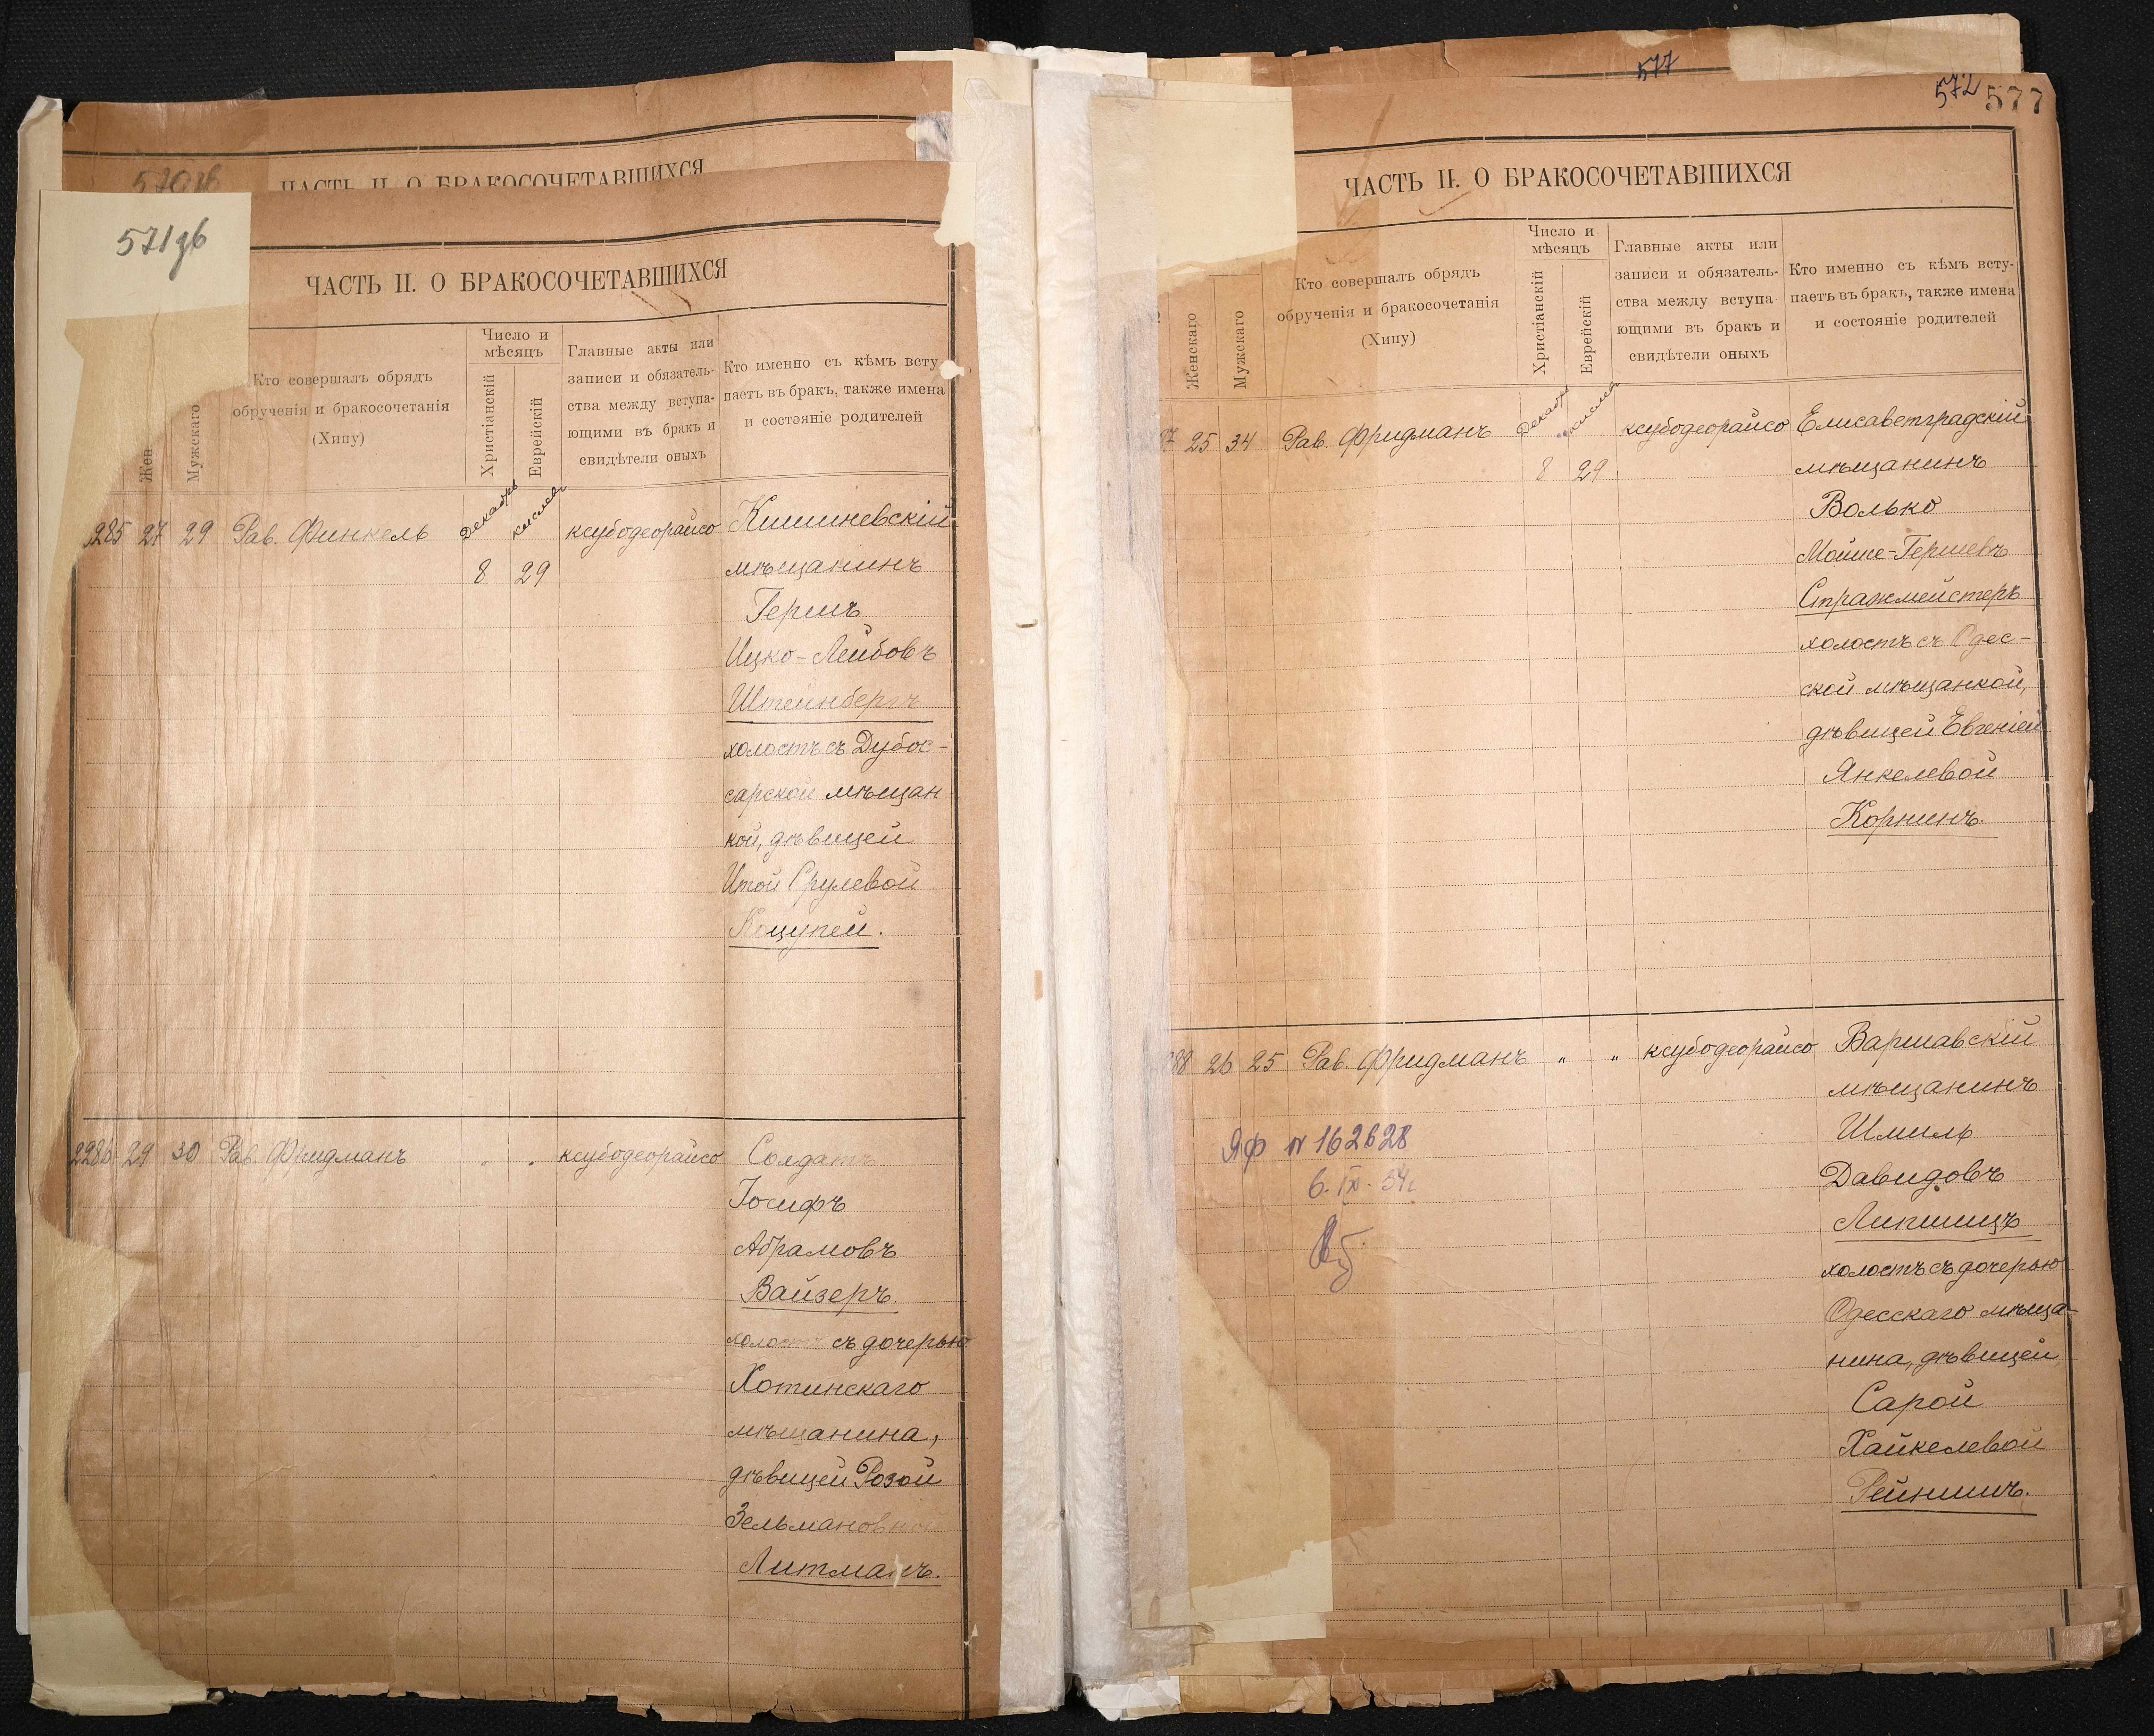 570зб
ЧАСТЬ II. О БРАКОСОЧЕТАВШИХСЯ
571зб
ЧАСТЬ II. О БРАКОСОЧЕТАВШИХСЯ
Жен
Мужскаго
Кто совершалъ обрядъ
обрученія и бракосочетанія
(Хипу)
Число и
мѣсяцъ
Христіанскій
Еврейскій
Главные акты или
записи и обязатель-
ства между вступа-
ющими въ бракъ и
свидѣтели оныхъ
Кто именно съ кѣмъ всту-
паетъ въ бракъ, также имена
и состояніе родителей
285 27 29 Рав. Финкель Декабрь кислевъ ксубодеорайсо Кишиневскій
8 29 мѣщанинъ
Гершъ
Ицко-Лейбовъ
Штейнбергъ
холостъ съ Дубос-
сарской мѣщан
кой, дѣвицей
Итой Срулевой
Коцупей.
2286 29 30 Рав. Фридманъ " " ксубодеорайсо Солдатъ
Іосифъ
Абрамовъ
Вайзеръ.
холостъ съ дочерью
Хотинскаго
мѣщанина,
дѣвицей Розой
Зельмановной
Литманъ.
577
572 577
ЧАСТЬ II. О БРАКОСОЧЕТАВШИХСЯ
Женскаго
Мужскаго
Кто совершалъ обрядъ
обрученія и бракосочетанія
(Хипу)
Число и
мѣсяцъ
Христіанскій
Еврейскій
Главные акты или
записи и обязатель-
ства между вступа-
ющими въ бракъ и
свидѣтели оныхъ
Кто именно съ кѣмъ всту-
паетъ въ бракъ, также имена
и состояніе родителей
87 25 34 Рав. Фридманъ Декабрь кислевъ ксубодеорайсо Елисаветградскій
8 29 мѣщанинъ
Волько
Мойше-Гершевъ
Стражмейстеръ
холостъ съ Одес-
ской мѣщанкой,
дѣвицей Евгеніей
Янкелевой
Корнинъ.
288 26 25 Рав. Фридманъ " " ксубодеорайсо Варшавскій
мѣщанинъ
Шмиль
Давидовъ
Липшицъ
холостъ съ дочерью
Одесскаго мѣща-
нина, дѣвицей
Сарой
Хайкелевой
Рейнишъ.
ЯФ № 162628
6. IX. 54г.